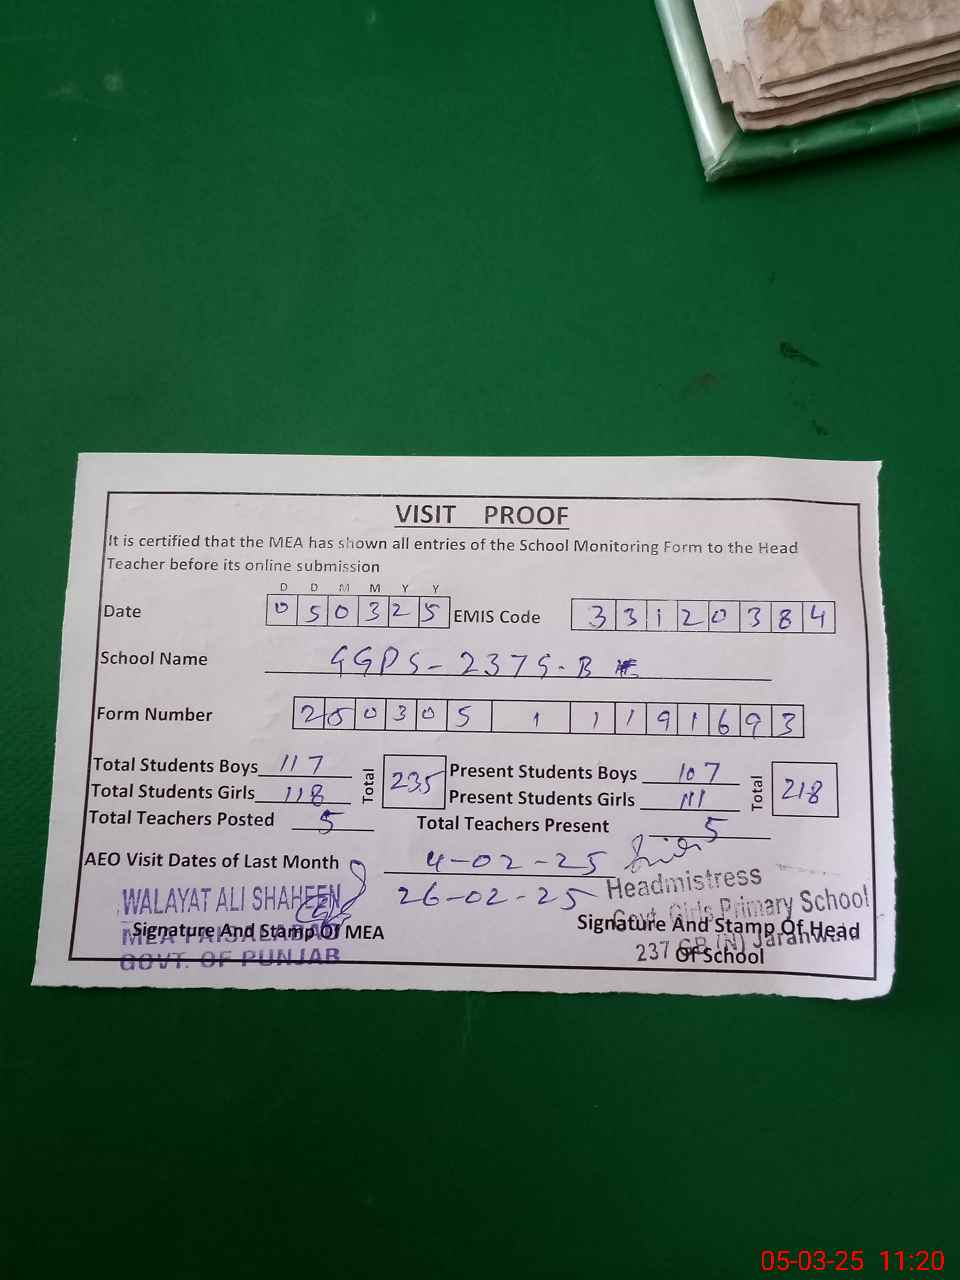 VISIT PROOF
It is certified that the MEA has shown all entries of the School Monitoring Form to the Head
Teacher before its online submission
D D M M Y Y
Date 0 5 0 3 2 5 EMIS Code 3 3 1 2 0 3 8 4
School Name GGPS-237G-B
Form Number 2 5 0 3 0 5 1 1 1 9 1 6 9 3
Total Students Boys 117 Total 235 Present Students Boys 107 Total 218
Total Students Girls 118 Present Students Girls 111
Total Teachers Posted 5 Total Teachers Present 5
AEO Visit Dates of Last Month 4-02-25
26-02-25
WALAYAT ALI SHAHEEN
MEA FAISALABAD
GOVT. OF PUNJAB
Signature And Stamp Of MEA
Headmistress
Govt. Girls Primary School
237 GB (N) Jaranwala
Signature And Stamp Of Head
Of School
05-03-25 11:20